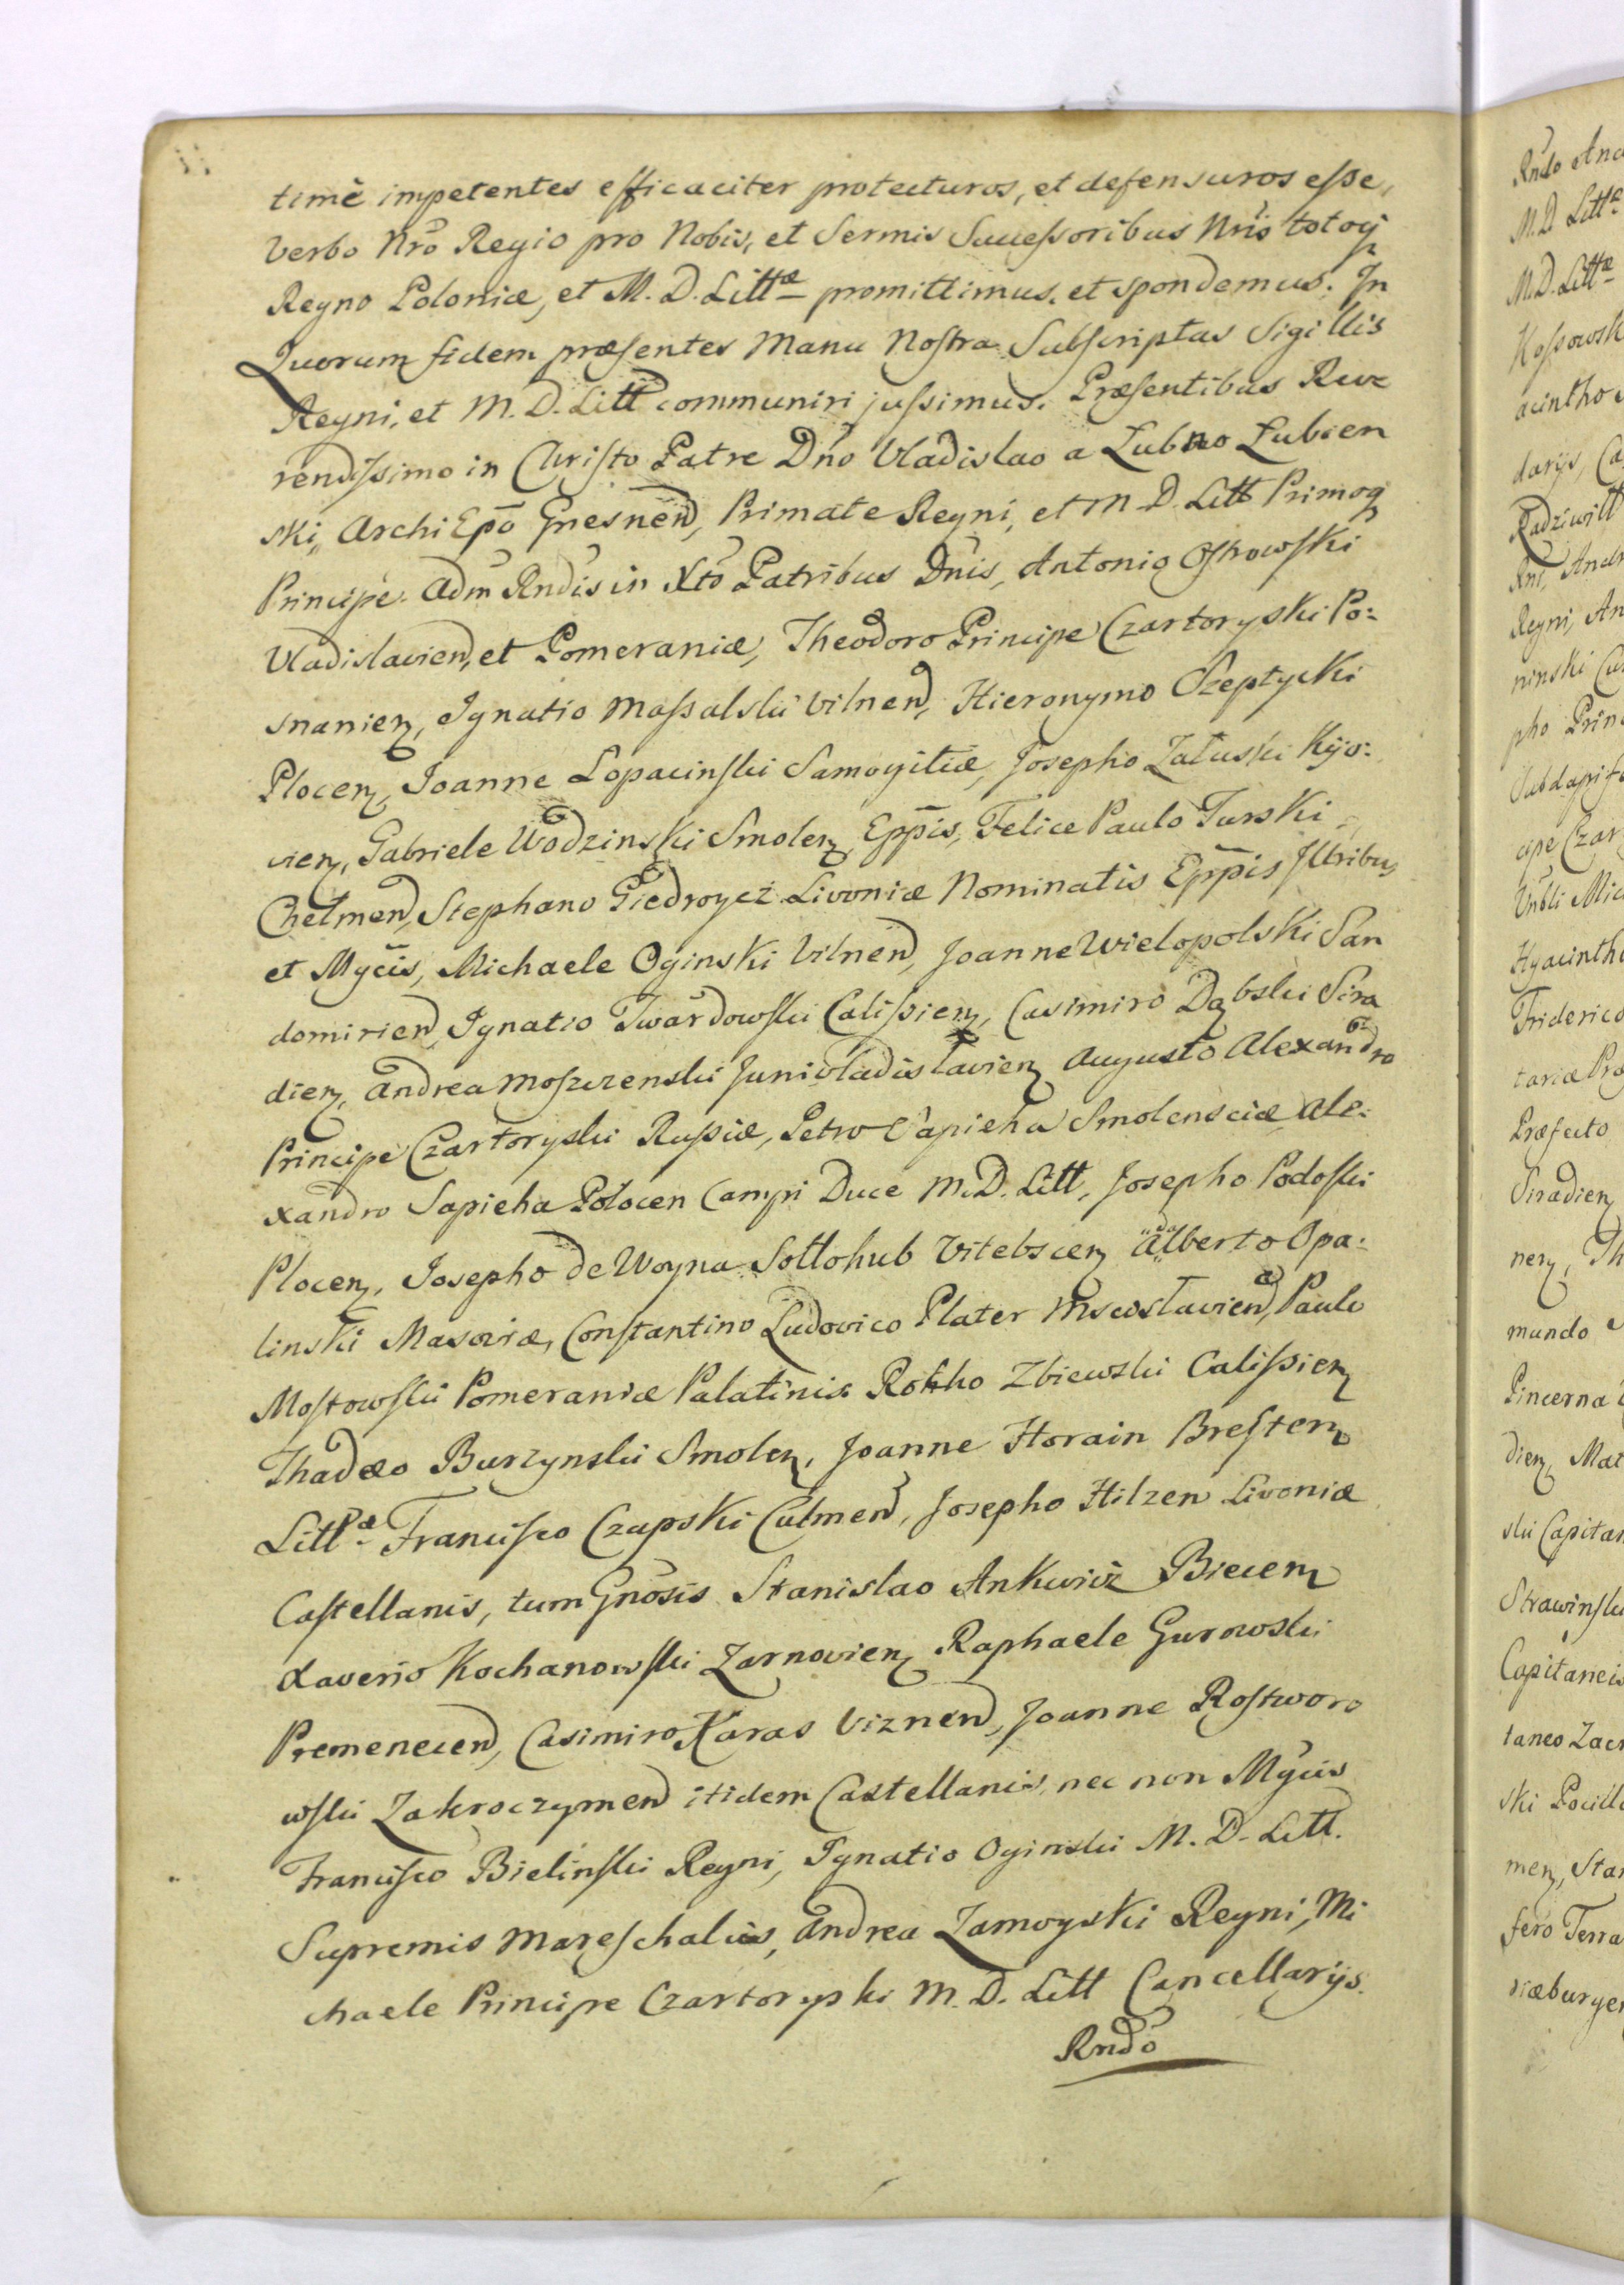 timè impetentes efficaciter protecturos, et defensuros eſse,
Verbo Nrõ Regio pro Nobis, et Sermis Succeſsoribus Nrĩs totoq
Regno Poloniæ, et M. D. Littæ promittimus, et spondemus. In
Quorum fidem præſentes Manu Noſtra Subſcriptas Sigillis
Regni, et M. D. Litt communiri juſsimus. Præſentibus Reve
rendiſsimo in Chriſto Patre Dño Vladislao a Lubno Lubien
ski, ArchiEpõ Gnesnen, Primate Regni, et M. D. Litt Primoq
Principe. Adm Rndis in Xto Patribus Dnis, Antonio Oſtrowſki
Vladislavien, et Pomeraniæ, Theodoro Principe Czartoryski Po:
snanien, Ignatio Maſsalski Vilnen, Hieronymo Szeptycki
Plocen, Joanne Lopacinſki Samogitiæ, Josepho Załuski Kijo:
vien, Gabriele Wodzinski Smolen, Eppis, Felice Paulo Turski
Chelmen, Stephano Giedroycź Livoniæ Nominatis Eppis Illribus
et Mgcis, Michaele Oginski Vilnen, Joanne Wielopolski San
domirien, Ignatio Twardowſki Caliſsien, Casimiro Dąbski Sira
dien, Andrea Moszczenski Junivladislavien Augusto Alexandro
Principe Czartoryski Ruſsiæ, Petro Sapieha Smolensciæ Ale:
xandro Sapieha Polocen Campi Duce M. D. Litt, Josepho Podoſki
Plocen, Josepho de Woyna Sołłohub Vitebscen Adalberto Opa:
linski Masoviæ, Conſtantino Ludovico Plater Mscislavien, Paulo
Moſtowſki Pomeraniæ Palatinis Rokho Zbiewski Caliſsien
Thadæo Burzynski Smolen, Joanne Horain Breſten
Littæ Franciſco Czapski Culmen, Josepho Hilzen Livoniæ
Caſtellanis, tum Gnosis Stanislao Ankwicz Biecen
Xaverio Kochanowſki Zarnovien Raphaele Gurowski
Premenecen, Casimiro Karas Viznen, Joanne Roſtworo
wſki Zakroczymen itidem Castellanis, nec non Mgcis
Franciſco Bielinſki Regni, Ignatio Oginski M. D. Litt.
Supremis Mareſchalcis, Andrea Zamoyski Regni, Mi
chaele Principe Czartoryski M. D. Litt Cancellarijs.
Rndo
Rndo And
M. D Littæ
M. D. Littæ
Koſsowsk
acintho
darijs, Ca
Radziwiłł
Rni, Andr
Regni, An
ninski Cu
pho Prin
Subdapife
cipe Czar
Mic
Hyacinth
Friderico
tariæ Præ
Præfecto
Siradien
nen, Th
mundo
Pincerna
dien, Mat
ski Capitan
Strawinski
Capitaneis
taneo Zacr
ski Pocill
men, Stan
fero Terra
diæburgen